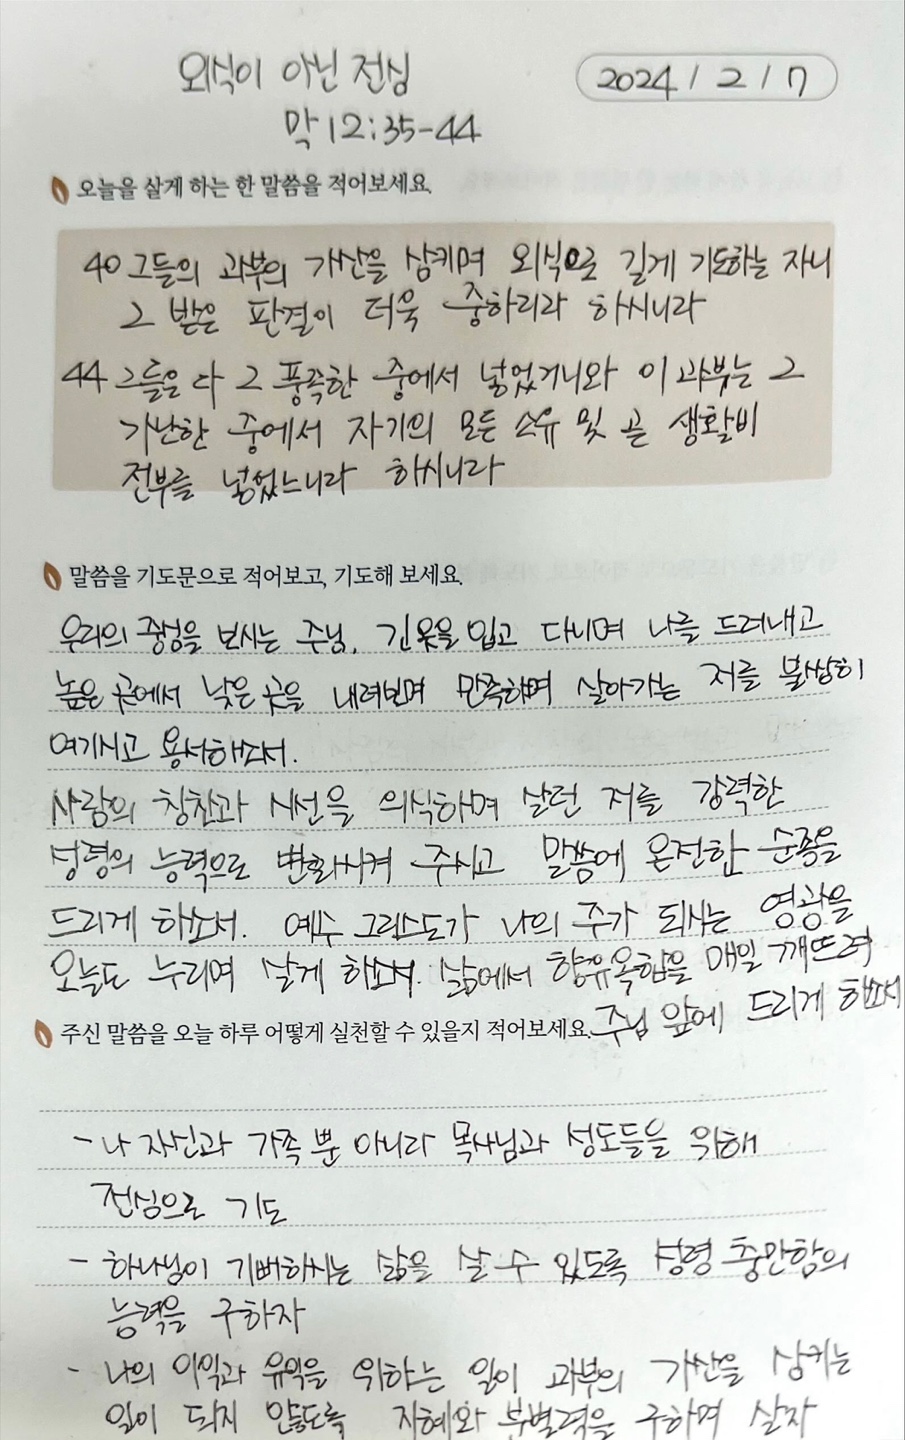 외식이 아닌 전심
2024 / 2 / 7
막 12:35-44
오늘을 살게 하는 한 말씀을 적어보세요.
40 그들의 과부의 가산을 삼키며 외식으로 길게 기도하는 자니
그 받은 판결이 더욱 중하리라 하시니라
44 그들은 다 그 풍족한 중에서 넣었거니와 이 과부는 그
가난한 중에서 자기의 모든 소유 및 곧 생활비
전부를 넣었느니라 하시니라
말씀을 기도문으로 적어보고, 기도해 보세요.
우리의 중심을 보시는 주님, 긴 옷을 입고 다니며 나를 드러내고
높은 곳에서 낮은 곳을 내려보며 만족하며 살아가는 저를 불쌍히
여기시고 용서하소서.
사람의 칭찬과 시선을 의식하며 살던 저를 강력한
성령의 능력으로 변화시켜 주시고 말씀에 온전한 순종을
드리게 하소서. 예수 그리스도가 나의 주가 되시는 영광을
오늘도 누리며 살게 하소서. 삶에서 향유옥합을 매일 깨뜨려
주님 앞에 드리게 하소서
주신 말씀을 오늘 하루 어떻게 실천할 수 있을지 적어보세요.
- 나 자신과 가족 뿐 아니라 목사님과 성도들을 위해
전심으로 기도
- 하나님이 기뻐하시는 삶을 살 수 있도록 성령 충만함의
능력을 구하자
- 나의 이익과 유익을 위하는 일이 과부의 가산을 삼키는
일이 되지 않도록 지혜와 분별력을 구하며 살자